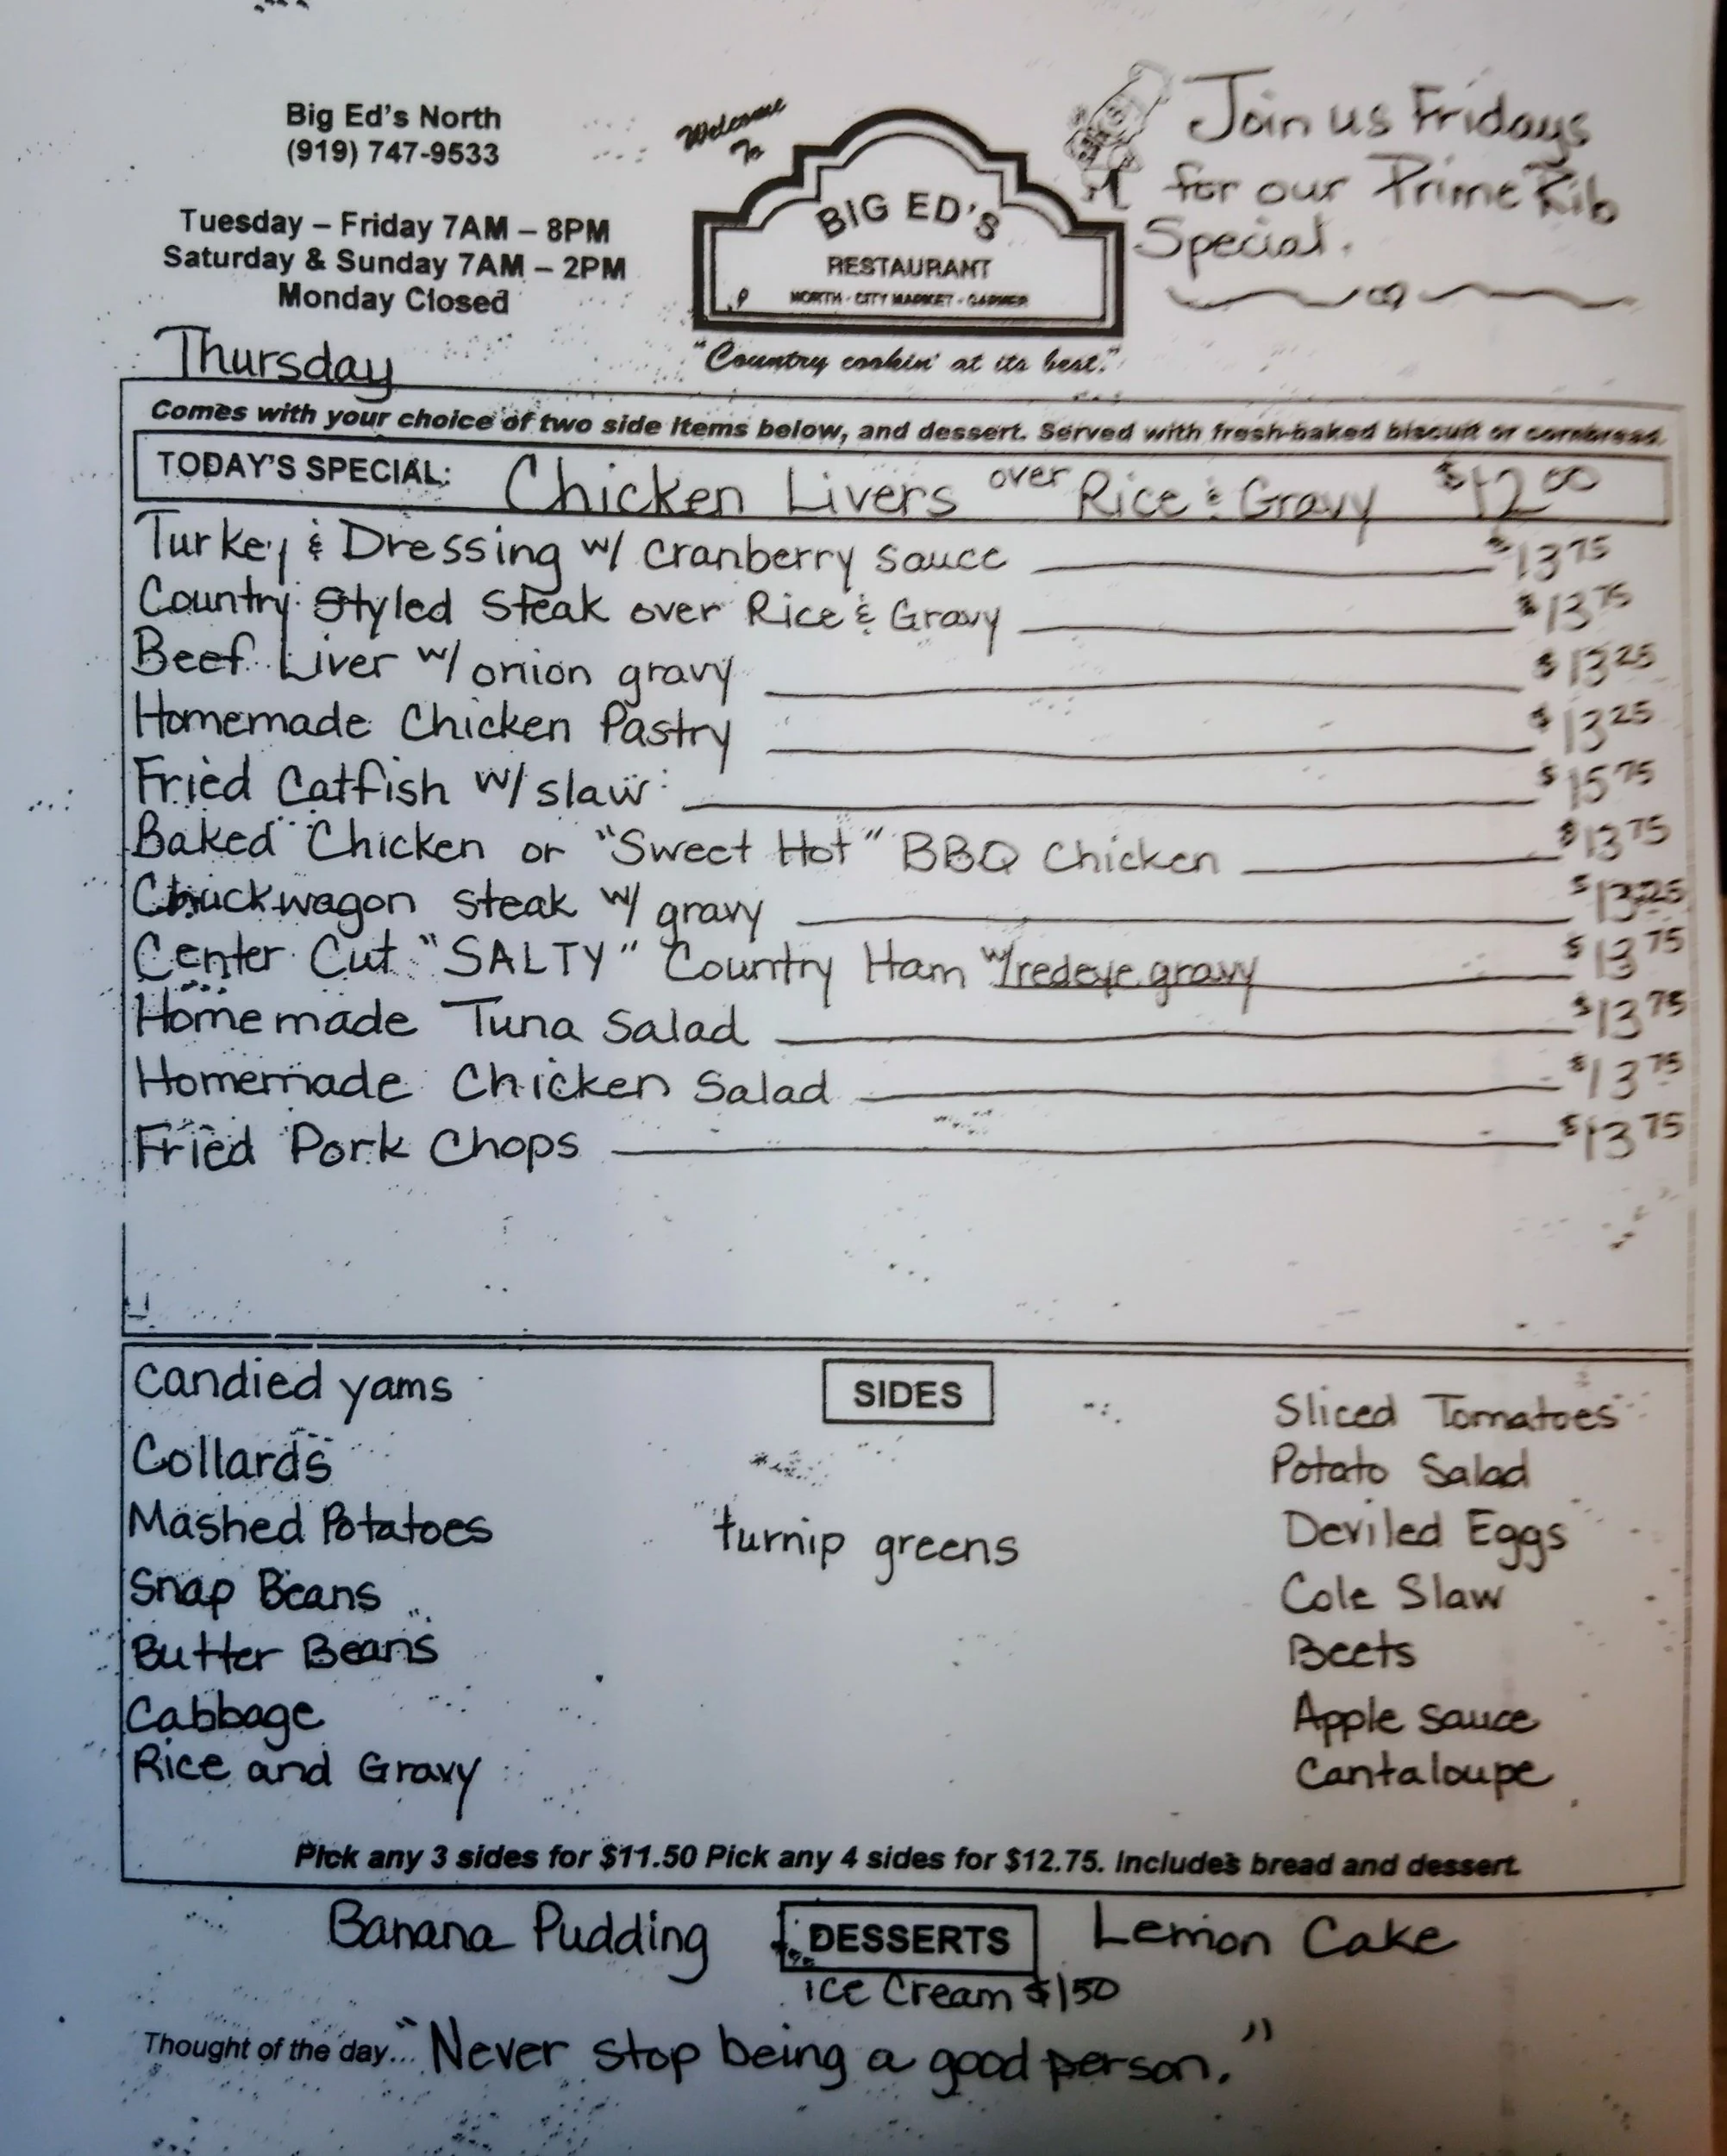 Big Ed's North
(919) 747-9533
Tuesday – Friday 7AM – 8PM
Saturday & Sunday 7AM – 2PM
Monday Closed
Welcome
To
BIG ED'S
RESTAURANT
NORTH - CITY MARKET - GARNER
"Country cookin' at its best."
Join us Fridays
for our Prime Rib
Special.
Thursday
Comes with your choice of two side items below, and dessert. Served with fresh-baked biscuit or cornbread.
TODAY'S SPECIAL: Chicken Livers over Rice & Gravy $12 00
Turkey & Dressing w/ cranberry sauce $13 75
Country Styled Steak over Rice & Gravy $13 75
Beef Liver w/ onion gravy $13 25
Homemade Chicken Pastry $13 25
Fried Catfish w/ slaw $15 75
Baked Chicken or "Sweet Hot" BBQ Chicken $13 75
Chuckwagon steak w/ gravy $13 25
Center Cut "SALTY" Country Ham w/ redeye gravy $13 75
Homemade Tuna Salad $13 75
Homemade Chicken Salad $13 75
Fried Pork Chops $13 75
SIDES
Candied yams
Collards
Mashed Potatoes
Snap Beans
Butter Beans
Cabbage
Rice and Gravy
turnip greens
Sliced Tomatoes
Potato Salad
Deviled Eggs
Cole Slaw
Beets
Apple sauce
Cantaloupe
Pick any 3 sides for $11.50 Pick any 4 sides for $12.75. Includes bread and dessert.
Banana Pudding DESSERTS Lemon Cake
ice Cream $1 50
Thought of the day... "Never stop being a good person."